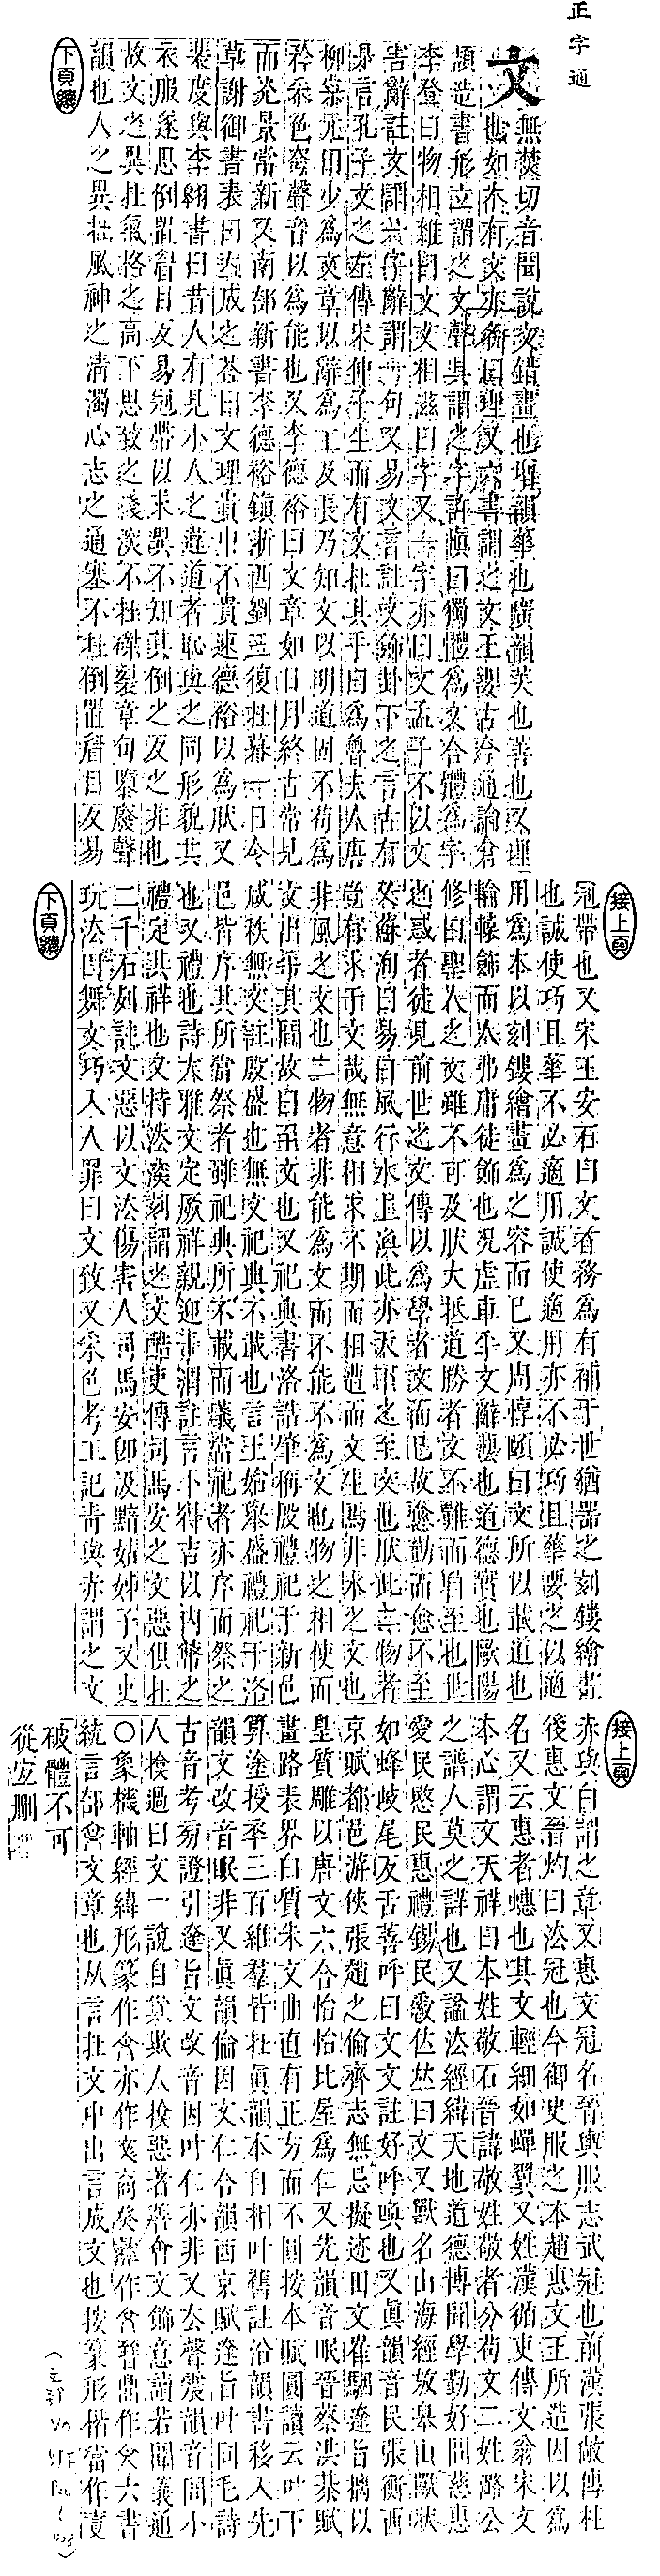 正字通
文
無焚切音聞說文錯畫也增韻華也廣韻美也善也又理
也如木有文亦名曰理又六書謂之文王鏊古今通論倉
頡造書形立謂之文聲具謂之字許愼曰獨體爲文合體爲字
李登曰物相雜曰文文相滋曰字又一字亦曰文孟子不以文
害辭註文謂六字辭謂一句又易文言註文飾卦下之言古有
是言孔子文之左傳宋仲子生而有文在其手曰爲魯夫人唐
柳宗元曰少爲文章以辭爲工及長乃知文以明道固不苟爲
矜采色夸聲音以爲能也又李德裕曰文章如日月終古常見
而光景常新又南部新書李德裕鎭浙西劉三復在幕一日令
草謝御書表曰立成之苍曰文理貴中不貴速德裕以爲然又
裴度與李翺書曰昔人有見小人之違道者恥與之同形貌共
衣服遂思倒置眉目反易冠帶以求異不知其倒之反之非也
故文之異在氣格之高下思致之淺深不在磔裂章句隳廢聲
韻也人之異在風神之淸濁心志之通塞不在倒置眉目反易
下頁續
接上頁
冠帶也又宋王安石曰文者務爲有補于世猶器之刻鏤繪畫
也誠使巧且華不必適用誠使適用亦不必巧且華要之以適
用爲本以刻鏤繪畫爲之容而已又周惇頤曰文所以載道也
輪轅飾而人弗庸徒飾也況虛車乎文辭藝也道德實也歐陽
修曰聖人之文雖不可及然大抵道勝者文不難而自至也世
之惑者徒見前世之文傳以爲學者文而已故愈勤而愈不至
又蘇洵曰易曰風行水上渙此亦天下之至文也然此二物者
豈有求乎文哉無意相求不期而相遭而文生焉非水之文也
非風之文也二物者非能爲文而不能不爲文也物之相使而
文出乎其閒故曰至文也又祀典書洛誥肇稱殷禮祀于新邑
咸秩無文註殷盛也無文祀典不載也言王始舉盛禮祀于洛
邑皆序其所當祭者雖祀典所不載而義當祀者亦序而祭之
也又禮也詩大雅文定厥祥親迎于渭註言卜得吉以內幣之
禮定其祥也又特法深刻謂之文酷吏傳司馬安之文惡俱在
二千石列註文惡以文法傷害人司馬安卽汲黯姑姊子又史
玩法曰舞文巧入人罪曰文致又采色考工記靑與赤謂之文
下頁續
接上頁
赤與白謂之章又惠文冠名晉輿服志武冠也前漢張敞傳柱
後惠文晉灼曰法冠也今御史服之本趙惠文王所造因以爲
名又云惠者蟪也其文輕細如蟬翼又姓漢循吏傳文翁宋文
本心謂文天祥曰本姓敬石晉諱敬姓敬者分苟文二姓潞公
之譜人莫之詳也又諡法經緯天地道德博聞學勤好問慈惠
愛民愍民惠禮錫民爵位𠀤曰文又獸名山海經放皋山獸狀
如蜂歧尾反舌善呼曰文文註好呼喚也又眞韻音民張衡西
京賦都邑游俠張趙之倫齊志無忌擬迹田文崔駰達旨摛以
皇質雕以唐文六合怡怡比屋爲仁又先韻音眠晉蔡洪棊賦
畫路表界白質朱文曲直有正方而不圓按本賦圓讀云叶下
算塗授卒三百維羣皆在眞韻本自相叶舊註沿韻書移入先
韻文改音眠非又眞韻倫因文仁合韻西京賦達旨叶同毛詩
古音考旁證引達旨文改音因叶仁亦非又去聲震韻音問小
人掩過曰文一說自欺欺人掩惡著善會文飾意讀若聞義通
○象機軸經緯形篆作㐱亦作文商癸彝作㐱晉鼎作㐱六書
統言部㐱文章也从言在文中出言成文也按篆形楷當作㐱
破體不可
從宜刪